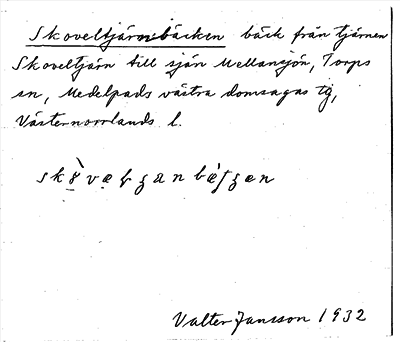 Skoveltjärnsbäcken bäck från tjärnen
Skoveltjärn till sjön Mellansjön, Torps
sn, Medelpads västra domsagas tg,
Västernorrlands l.
Valter Jansson 1932